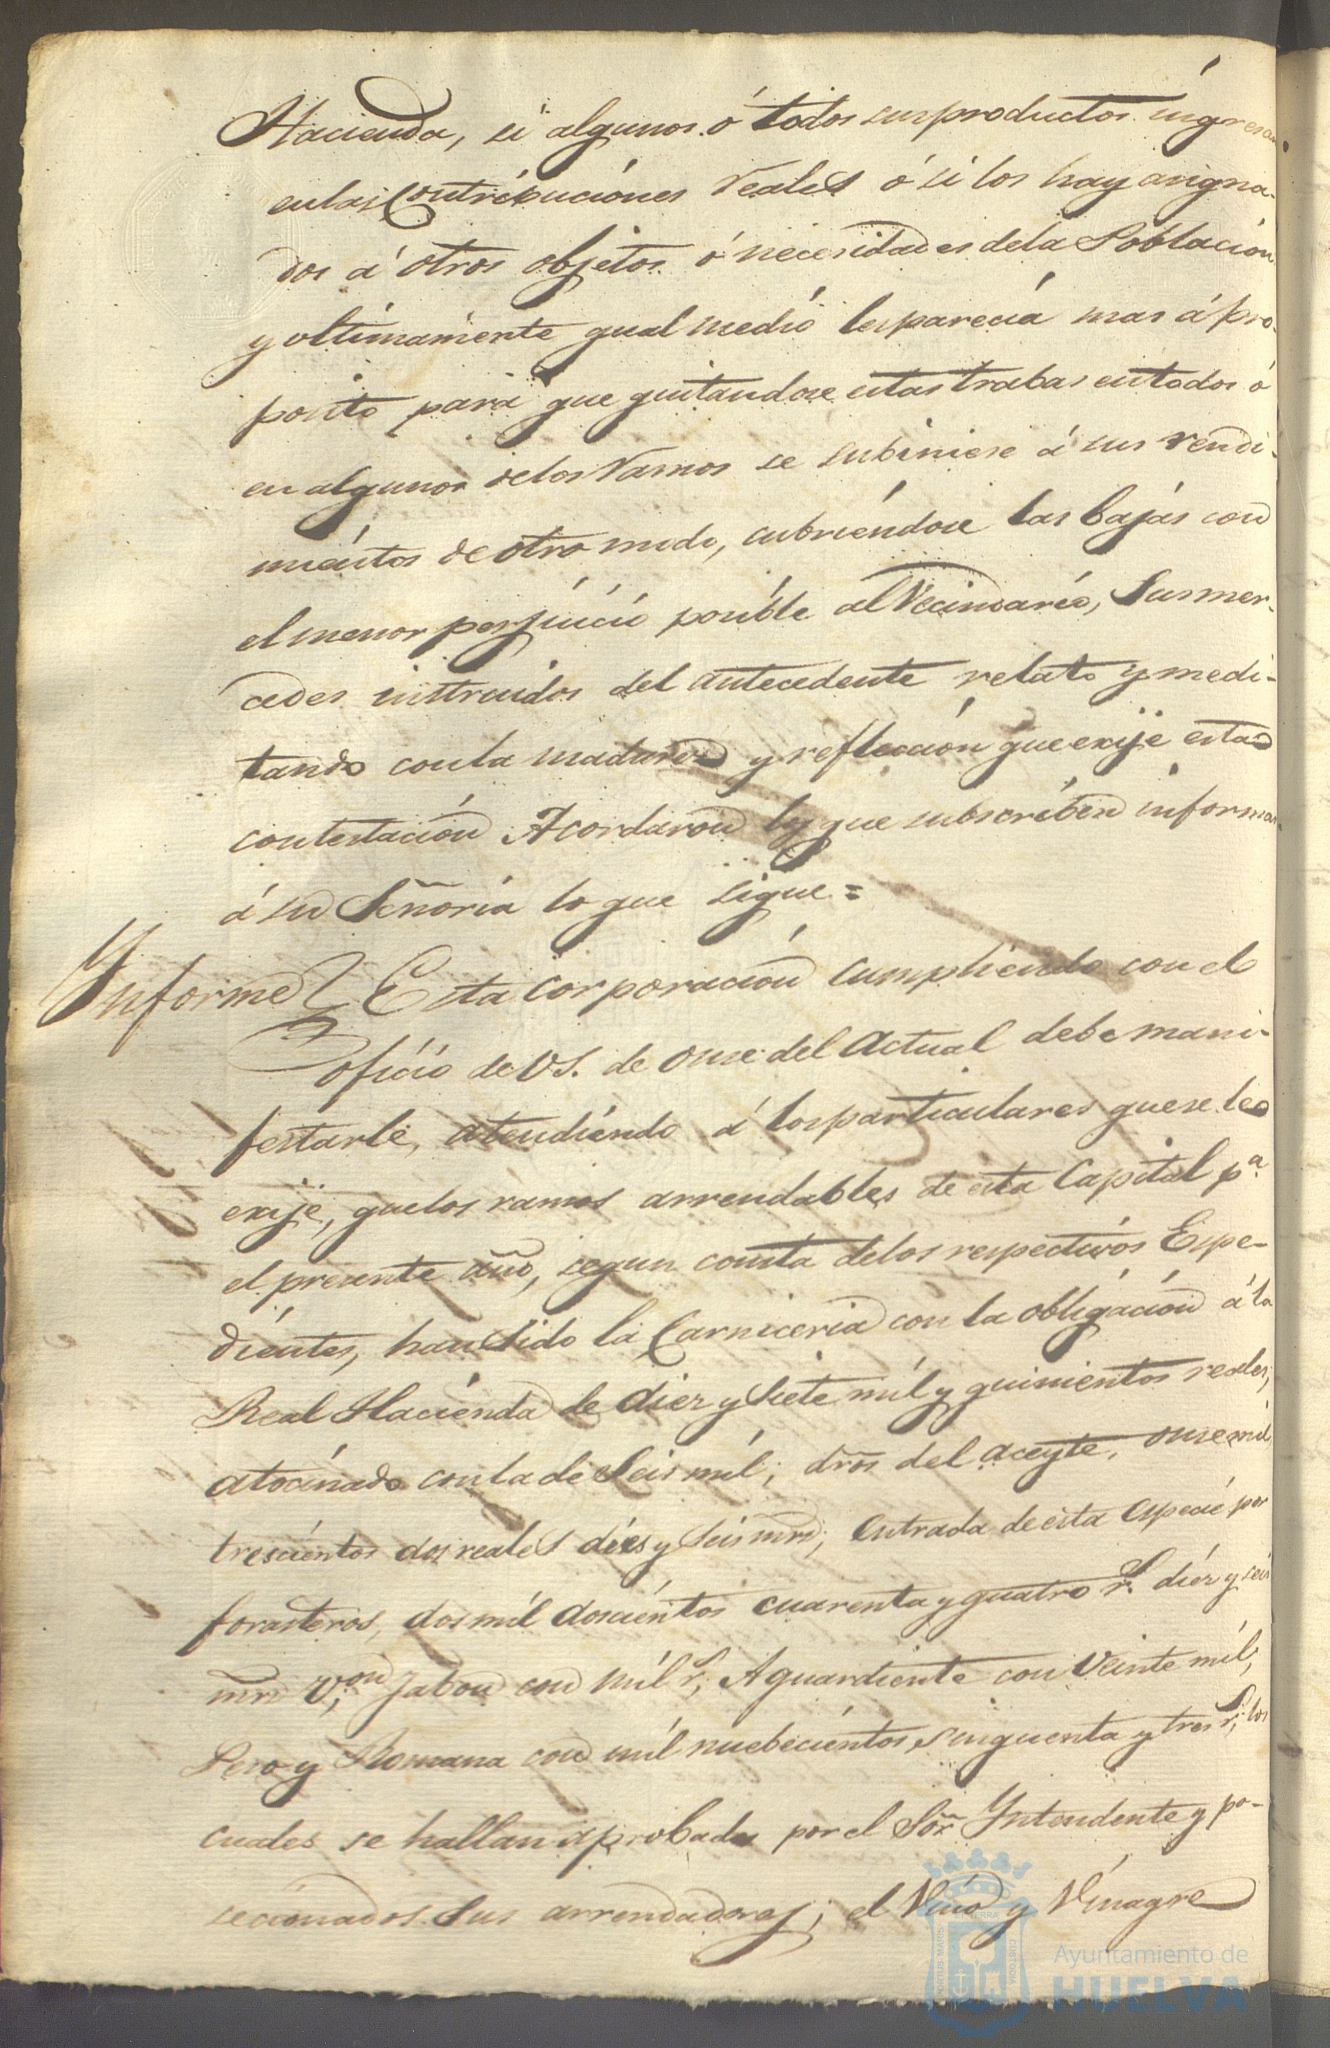 Hacienda, si algunos ó todos sus productos ingresan
en las Contribuciones reales ó si los hay asigna-
dos á otros objetos ó necesidades de la Poblacion
y ultimamente qual medio les parecia mas á pro-
posito para que quitandose estas trabas en todos ó
en algunos de los ramos se subiniese á sus rendi-
mientos de otro modo, cubriendose las bajas con
el menor perjuicio posible al Vecindario, Sus mer-
cedes instruidos del antecedente relato y medi-
tando con la madurez y reflecsion que exije esta
contestacion Acordaron los que subscriben informar
á su Señoria lo que sigue =
Ynforme Esta corporacion cumpliendo con el
oficio de V.S. de onse del Actual debe mani-
festarle, atendiendo á los particulares que se le
exije, que los ramos arrendables de esta Capital pª
el presente año, segun consta de los respectivos Espe-
dientes, han sido la Carniceria con la obligacion á la
Real Hacienda de diez y siete mil y quinientos reales,
atocinado con la de Seis mil; dros del aceyte, onse mil
trescientos dos reales dies y seis mrs; entrada de esta especie por
forasteros, dos mil doscientos cuarenta y quatro rs. diez y seis
mrs Von; Jabon con mil rs, Aguardiente con veinte mil;
Peso y Romana con mil nuebecientos sinquenta y tres rs; los
cuales se hallan aprobados por el Sor Yntendente y po-
secionados sus arrendadores; el Vino y Vinagre
Ayuntamiento de
HUELVA